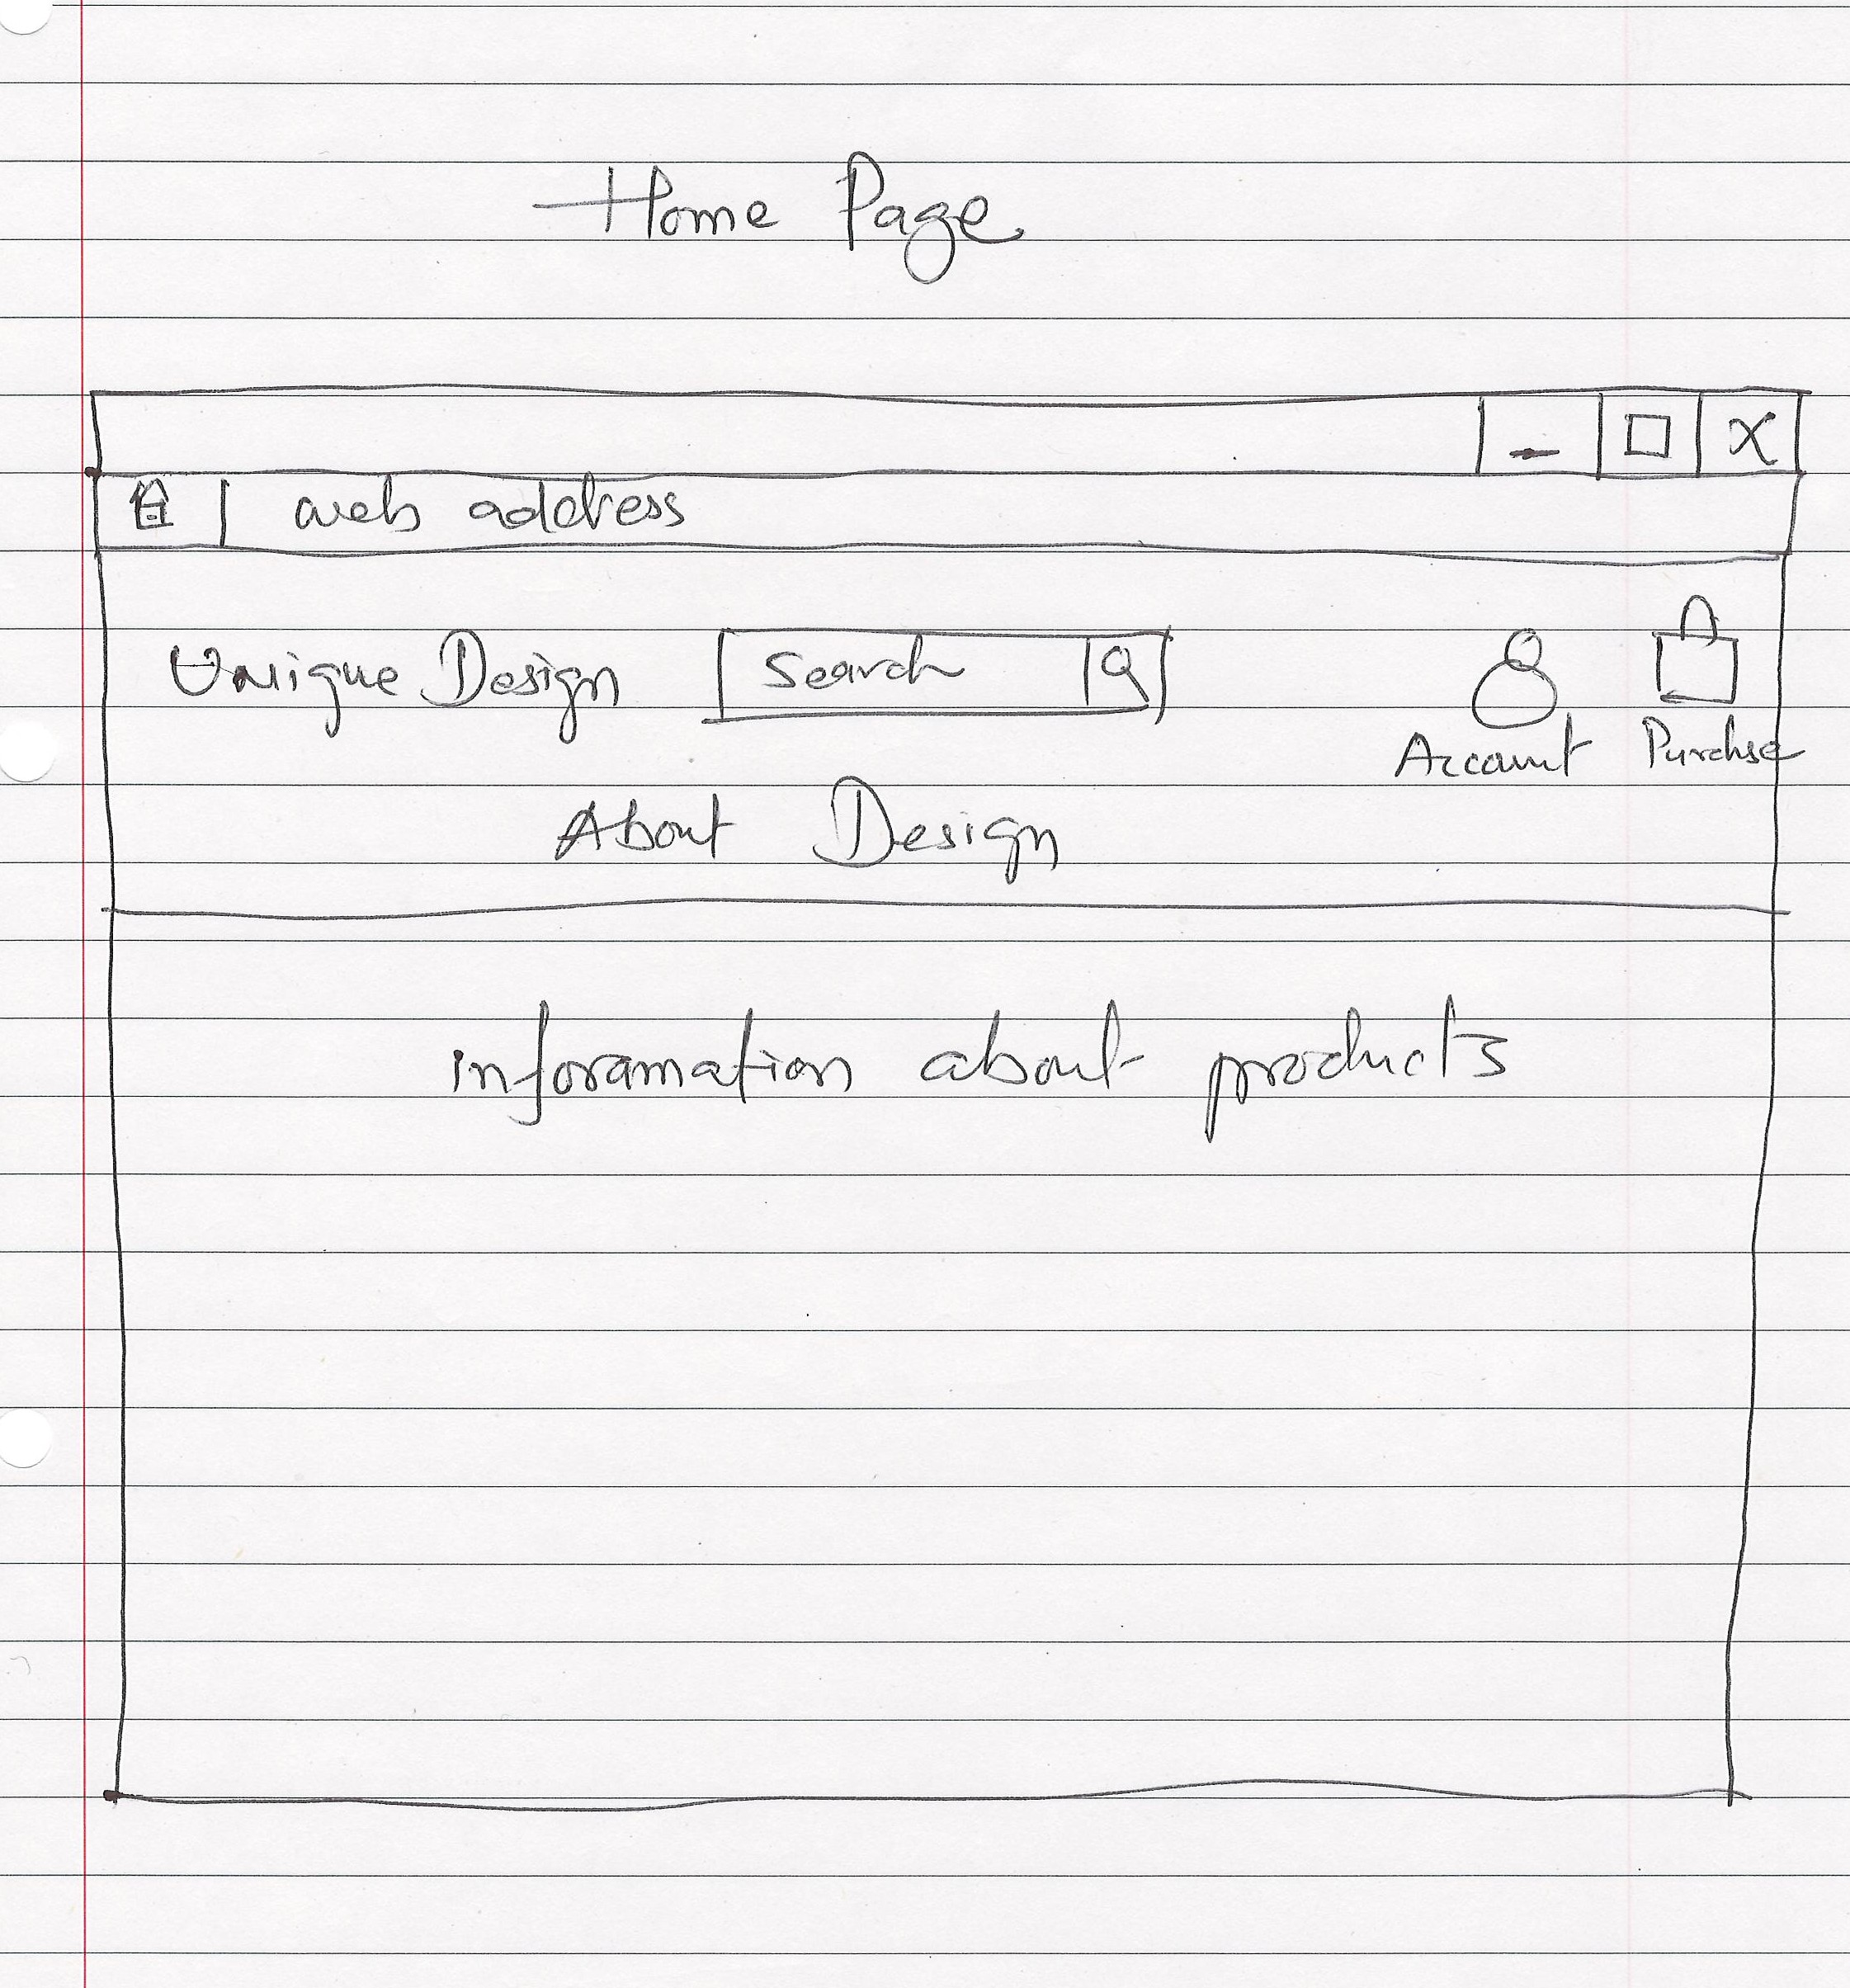 Home Page
X
web address
Unique Design Search
Account Purchse
About Design
inforamation about products